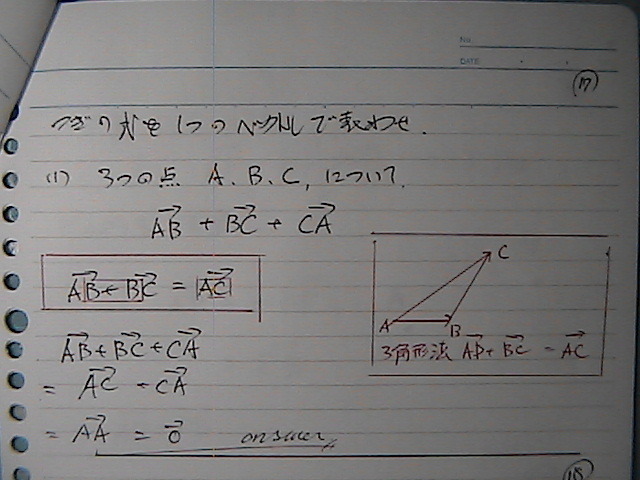 No.
DATE
17
つぎの式を1つのベクトルで表わせ.
(1) 3つの点 A、B、C、について
→AB + →BC + →CA
→AB + →BC = →AC
C
A B
3角形法 →AB + →BC = →AC
→AB + →BC + →CA
= →AC + →CA
= →AA = →0 answer
18